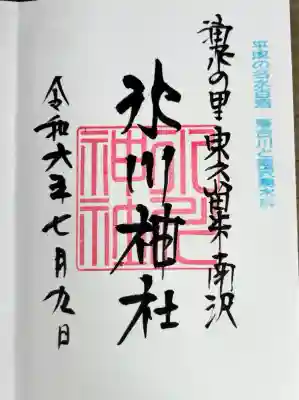 平成の名水百選 落合川と南沢湧水群
湧水の里 東久留米 南沢
氷川神社
氷川
神社
令和六年七月九日